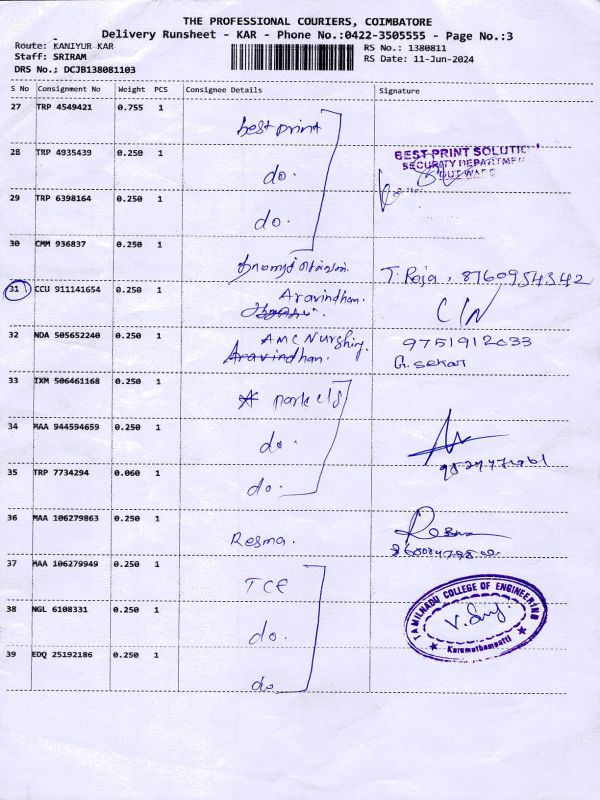 THE PROFESSIONAL COURIERS, COIMBATORE
Delivery Runsheet - KAR - Phone No.:0422-3505555 - Page No.:3
Route: KANIYUR KAR
RS No.: 1380811
Staff: SRIRAM
RS Date: 11-Jun-2024
DRS No.: DCJB138081103
S No Consignment No Weight PCS Consignee Details Signature
27 TRP 4549421 0.755 1
best print
28 TRP 4935439 0.250 1
BEST PRINT SOLUTION
SECURATY DEPARTMENT
OUTWARD
do.
29 TRP 6398164 0.250 1
do.
30 CMM 936837 0.250 1
T. Raja. 8760954342
31 CCU 911141654 0.250 1
Aravindhan.
C/N
32 NDA 505652240 0.250 1
AMC Nurshing.
9751912033
Aravindhan.
G. Sekar
33 IXM 506461168 0.250 1
34 MAA 944594659 0.250 1
do.
35 TRP 7734294 0.060 1
do.
36 MAA 106279863 0.250 1
Resma.
37 MAA 106279949 0.250 1
TCE
TAMILNADU COLLEGE OF ENGINEERING
Karumathampatti
38 NGL 6108331 0.250 1
do.
39 EDQ 25192186 0.250 1
do